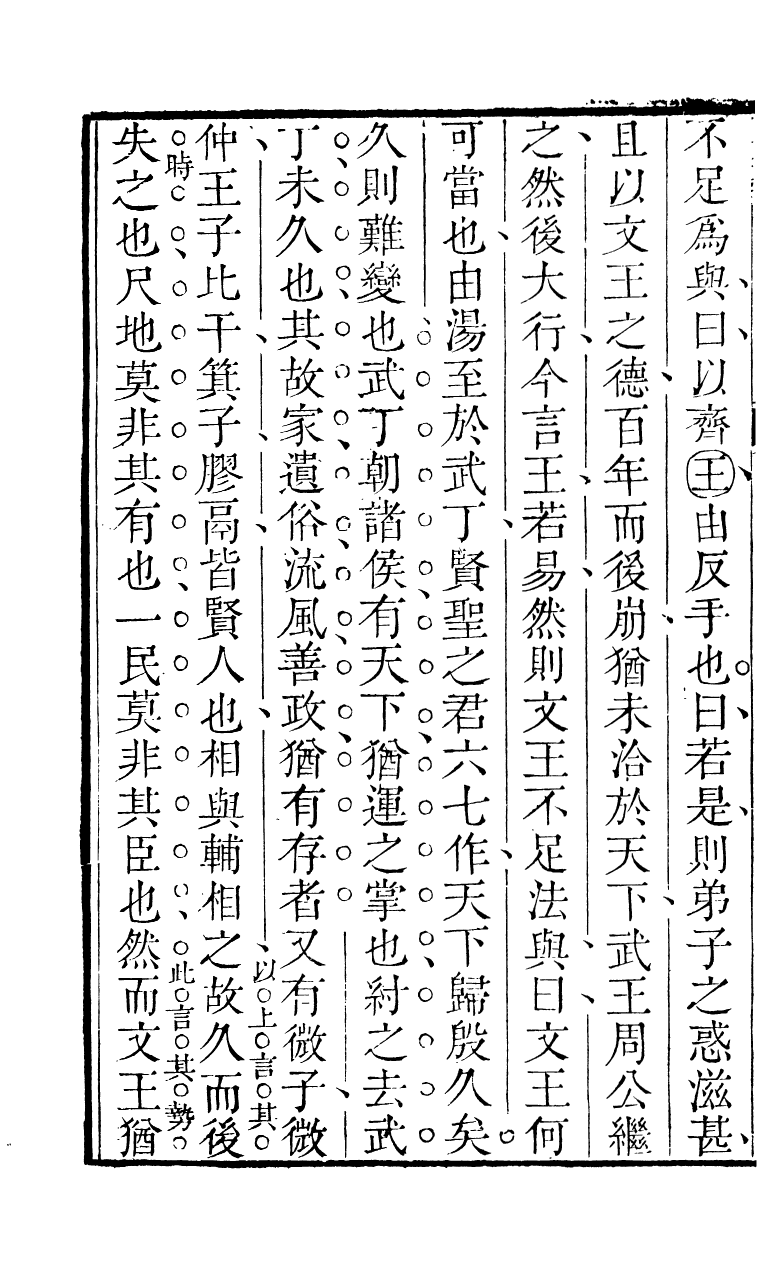 不足爲與曰以齊王由反手也曰若是則弟子之惑滋甚
且以文王之德百年而後崩猶未洽於天下武王周公繼
之然後大行今言王若易然則文王不足法與曰文王何
可當也由湯至於武丁賢聖之君六七作天下歸殷久矣
久則難變也武丁朝諸侯有天下猶運之掌也紂之去武
丁未久也其故家遺俗流風善政猶有存者又有微子微
以上言其
時
仲王子比干箕子膠鬲皆賢人也相與輔相之故久而後
此言其勢
失之也尺地莫非其有也一民莫非其臣也然而文王猶